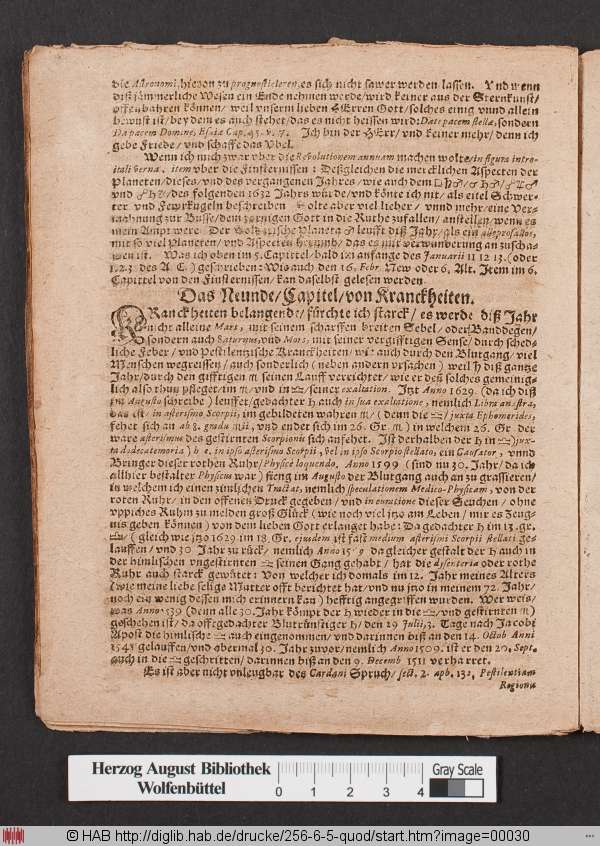 die Astronomi, hievon zu prognosticieren, es sich nicht sawer werden lassen. Vnd wenn
diß jämmerliche Wesen ein Ende nehmen werde / wird keiner aus der Sternkunst /
offenbahren können / weil vnserm lieben HErren Gott / solches einig vnnd allein
bewust ist / bey dem es auch stehet / das es nicht heissen wird: Date pacem stellæ, sondern
Da pacem Domine, Esaiæ Cap. 45. v. 7. Ich bin der HErr / vnd keiner mehr / denn ich
gebe Friede / vnd schaffe das Vbel.
Wenn ich mich zwar vber die Revolutionem annuam machen wolte / in figura intro-
itali verna, item vber die Finsternissen: Deßgleichen die mercklichen Aspecten der
Planeten / dieses / vnd des vergangenen Jahres / wie auch dem
vnd des folgenden 1632 Jahrs würde / vnd könte ich nit / als eitel Schwer-
ter vnd Fewrkugeln beschreiben Solte aber viel lieher / vnnd mehr / eine Ver-
mahnung zur Busse / dem zornigen Gott in die Ruthe zufallen / anstellen / wenn es
mein Ampt were Der Planeta ♂ leufft diß Jahr / als ein
mit so viel Planeten / vnd Aspecten herumb / das es mit verwunderung an zuscha-
wen ist. Was ich oben im 5. Capittel / bald im anfange des Januarii 11 12 13. (oder
1. 2. 3. des A. C.) geschrieben: Wie auch den 16. Febr. New oder 6. Alt. Item im 6.
Capittel von den Finsternissen / kan daselbst gelesen werden.
Das Neunde / Capitel / von Kranckheiten.
KRanckheiten belangende / fürchte ich starck / es werde diß Jahr
nicht alleine Mars, mit seinem scharffen breiten Sebel / oder Handdegen /
sondern auch Saturnus, vnd Mors, mit seiner vergifftigen Sense / durch sched-
liche Feber / vnd Pestilentzische Kranckheiten / wie auch durch den Blutgang / viel
Menschen wegreissen / auch sonderlich (neben andern vrsachen) weil ♄ diß gantze
Jahr / durch den gifftigen ♏ seinen Lauff verrichtet / wie er deß solches gemeinig-
lich also thun pfleget / im ♏ / vnd in ♎ / seiner exaltation. Itzt Anno 1629. (da ich diß
im Augusto schreibe) leuffet / gedachter ♄ auch in sua exaltatione, nemlich Libra an astra,
das ist / in asterismo Scorpii, im gebildeten wahren ♏ / (denn die ♎ / juxta Ephemerides,
fehet sich an ab 8. gradu ♏ii, vnd endet sich im 26. Gr. ♏) in welchem 26. Gr. der
ware asterismus des gestirnten Scorpionis sich anfehet. Ist derhalben der ♄ in ♎ (jux-
ta dodecatemoria) h. e. in ipso asterismo Scorpii, vel in ipso Scorpio stellato, ein Causator, vnnd
Bringer dieser rothen Ruhr / Physicè loquendo. Anno 1599 (sind nu 30. Jahr / da ich
allhier bestalter Physicus war) fieng im Augusto der Blutgang auch an zu grassieren /
in welchem ich einen zünlichen Tractat, nemlich speculationem Medico-Physicam, von der
roten Ruhr / in den offenen Druck gegeben / vnd in curatione dieser Seuchen / ohne
vppiches Ruhm zu melden groß Glück (wie noch viel itzo am Leben / mir es Zeug-
nis geben können) von dem lieben Gott erlanget habe: Da gedachter ♄ im 13. gr.
♎ / (gleich wie jtzo 1629 im 18. Gr. ejusdem ist fast medium asterismi Scorpii stellati ge-
lauffen / vnd 30 Jahr zu rück / nemlich Anno da gleicher gestalt der ♄ auch in
der himlischen vngestirnten ♎ seinen Gang gehabt / hat die dysenteria oder rothe
Ruhr auch starck gewütet: Von welcher ich domals im 12. Jahr meines Alters
(wie meine liebe selige Mutter offt berichtet hat / vnd nu jtzo in meinem 72. Jahr /
noch ein wenig dessen mich erinnern kan) hefftig angegriffen wurden. Wer weis /
was Anno 539 (denn alle 30. Jahr kömpt der ♄ wieder in die ♎ / vnd gestirnten ♏)
geschehen ist / da offtgedachter Blutrünstiger ♄ / den 29 Julii, 3. Tage nach Jacobi
Apost die himlische ♎ auch eingenommen / vnd darinnen biß an den 14. Octob Anni
1541 gelauffen / vnd abermal 30. Jahr zuvor / nemlich Anno 1509. ist er den 20. Sept.
auch in die ♎ geschritten / darinnen biß an den 9. Decemb 1511 verharret.
Es ist aber nicht vnleugbar des Cardani Spruch / sect. 2. aph. 132, Pestilentiam
Regionis
Herzog August Bibliothek
Wolfenbüttel
0 1 2 3 4
Gray Scale
© HAB http://diglib.hab.de/drucke/256-6-5-quod/start.htm?image=00030